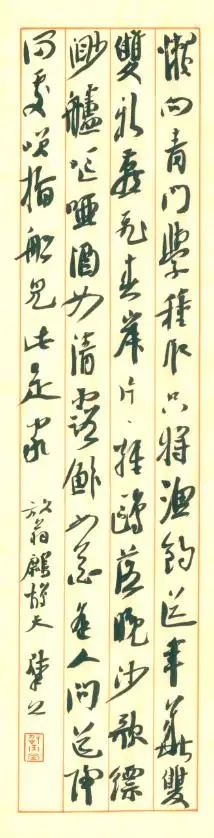 懶向青門學種瓜只將漁釣送年華雙
雙新燕飛春岸片片輕鷗落晚沙歌縹
渺艫嘔啞酒如清露鮓如花逢人問道歸
何處笑指船兒此是家 放翁鷓鴣天